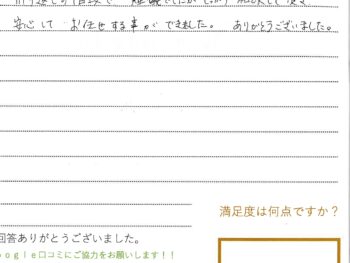 安心して お任せする事ができました。 ありがとうございました。
満足度は何点ですか？
回答ありがとうございました。
oogle口コミにご協力をお願いします！！